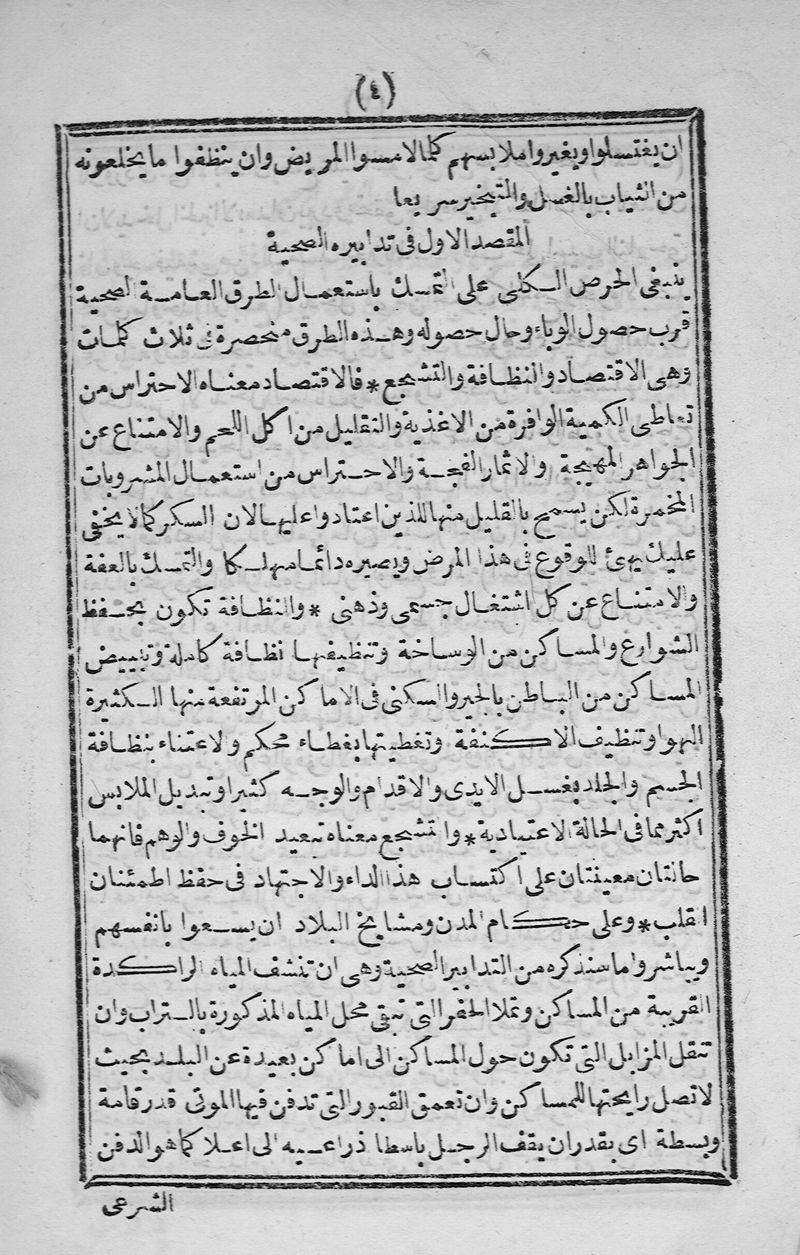 (٤)
ان يغتسلوا ويغيروا ملابسهم كلما لامسوا المريض وان ينظفوا ما يخلعونه
من الثياب بالغسل والتبخير سريعا
المقصد الاول فى تدابيره الصحية
ينبغى الحرص الكلى على التمسك باستعمال الطرق العامة الصحية
قرب حصول الوباء وحال حصوله وهذه الطرق منحصرة فى ثلاث كلمات
وهى الاقتصاد والنظافة والتشجيع * فالاقتصاد معناه الاحتراس من
تعاطى الكمية الوافرة من الاغذية والتقليل من اكل اللحم والامتناع عن
الجواهر المهيجة والاثمار الفجة والاحتراس من استعمال المشروبات
المخمرة لكن يسمح بالقليل منها للذين اعتادوا عليها لان السكر كما لا يخفى
عليك يهئ للوقوع فى هذا المرض ويصيره دائما مهلكا والتمسك بالعفة
والامتناع عن كل اشتغال جسمى وذهنى * والنظافة تكون بحفظ
الشوارع والمساكن من الوساخة وتنظيفها نظافة كاملة وتبييض
المساكن من الباطن بالجير والسكنى فى الاماكن المرتفعة منها الكثيرة
الهوا وتنظيف الاكنفة وتغطيتها بغطاء محكم والاعتناء بنظافة
الجسم والجلد بغسل الايدى والاقدام والوجه كثيرا وتبديل الملابس
اكثر مما فى الحالة الاعتيادية * والتشجيع معناه تبعيد الخوف والوهم فانهما
حالتان معينتان على اكتساب هذا الداء والاجتهاد فى حفظ اطمئنان
القلب * وعلى حكام المدن ومشايخ البلاد ان يسعوا بانفسهم
ويباشروا ما سنذكره من التدابير الصحية وهى ان تنشف المياه الراكدة
القريبة من المساكن وتملا الحفر التى تبقى محل المياه المذكورة بالتراب وان
تنقل المزابل التى تكون حول المساكن الى اماكن بعيدة عن البلد بحيث
لا تصل رايحتها للمساكن وان تعمق القبور التى تدفن فيها الموتى قدر قامة
وبسطة اى بقدر ان يقف الرجل باسطا ذراعيه الى اعلا كما هو الدفن
الشرعى